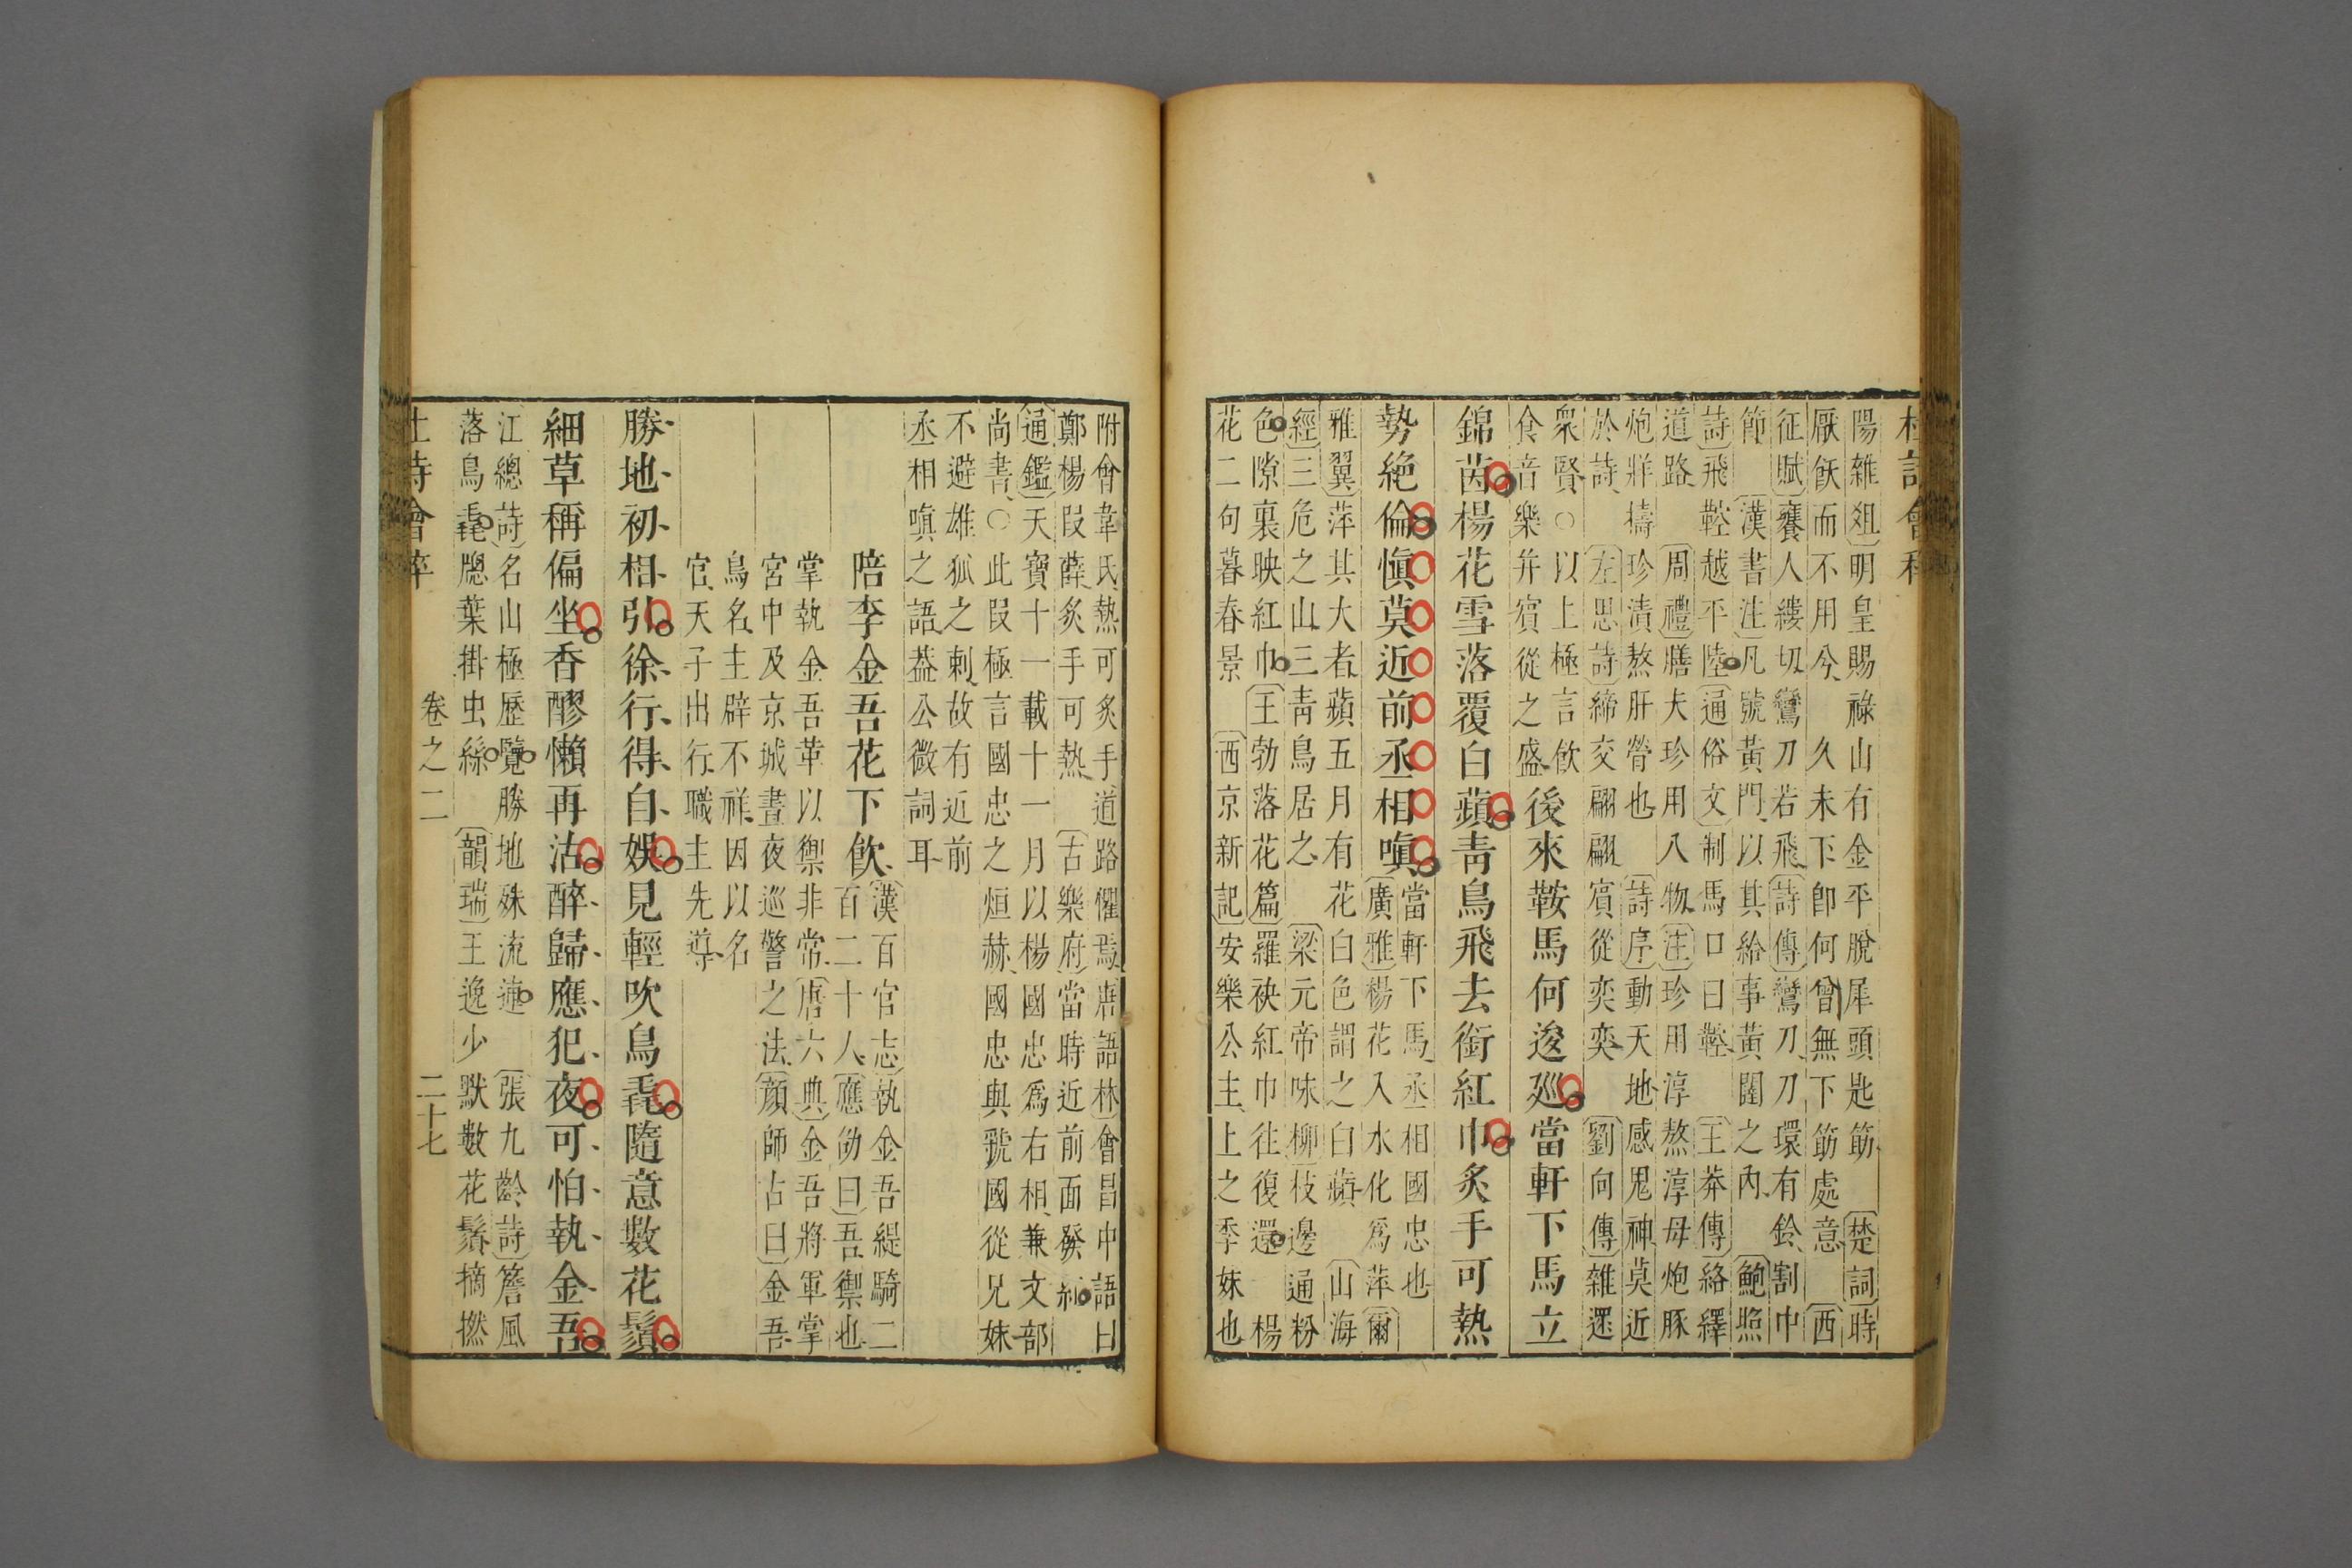 杜詩會稡
陽雜俎明皇賜祿山有金平脫犀頭匙筯 楚詞時
厭飫而不用兮 久未下卽何曾無下筯處意 西
征賦饔人縷切鸞刀若飛詩傳鸞刀刀環有鈴割中
節 漢書注凡號黃門以其給事黃闥之內 鮑照
詩飛鞚越平陸通俗文制馬口曰鞚 王莽傳絡繹
道路 周禮膳夫珍用八物注珍用淳熬淳母炮豚
炮牂擣珍漬熬肝膋也 詩序動天地感鬼神莫近
於詩 左思詩締交翩翩賓從奕奕 劉向傳雜遝
衆賢○以上極言飲
食音樂并賓從之盛
後來鞍馬何逡廵當軒下馬立
錦茵楊花雪落覆白蘋靑鳥飛去銜紅巾炙手可熱
勢絶倫愼莫近前丞相嗔
當軒下馬丞相國忠也
廣雅楊花入水化爲萍爾
雅翼萍其大者蘋五月有花白色謂之白蘋 山海
經三危之山三靑鳥居之 梁元帝味柳枝邊通粉
色隙裏映紅巾王勃落花篇羅袂紅巾往復還 楊
花二句暮春景 西京新記安樂公主上之季妹也
附會韋氏熱可炙手道路懼焉唐語林會昌中語曰
鄭楊叚薛炙手可熱 古樂府當時近前面發紅
通鑑天寶十一載十一月以楊國忠爲右相兼文部
尚書○此叚極言國忠之烜赫國忠與虢國從兄妹
不避雄狐之刺故有近前
丞相嗔之語葢公微詞耳
陪李金吾花下飲
漢百官志執金吾緹騎二
百二十人應劭曰吾禦也
掌執金吾革以禦非常唐六典金吾將軍掌
宮中及京城晝夜巡警之法顏師古曰金吾
鳥名主辟不祥因以名
官天子出行職主先導
勝地初相引徐行得自娛見輕吹鳥毳隨意數花鬚
細草稱偏坐香醪懶再沽醉歸應犯夜可怕執金吾
江總詩名山極歷覽勝地殊流連 張九齡詩簷風
落鳥毳牕葉掛虫絲 韻瑞王逸少默數花鬚摘撚
杜詩會稡
卷之二
二十七